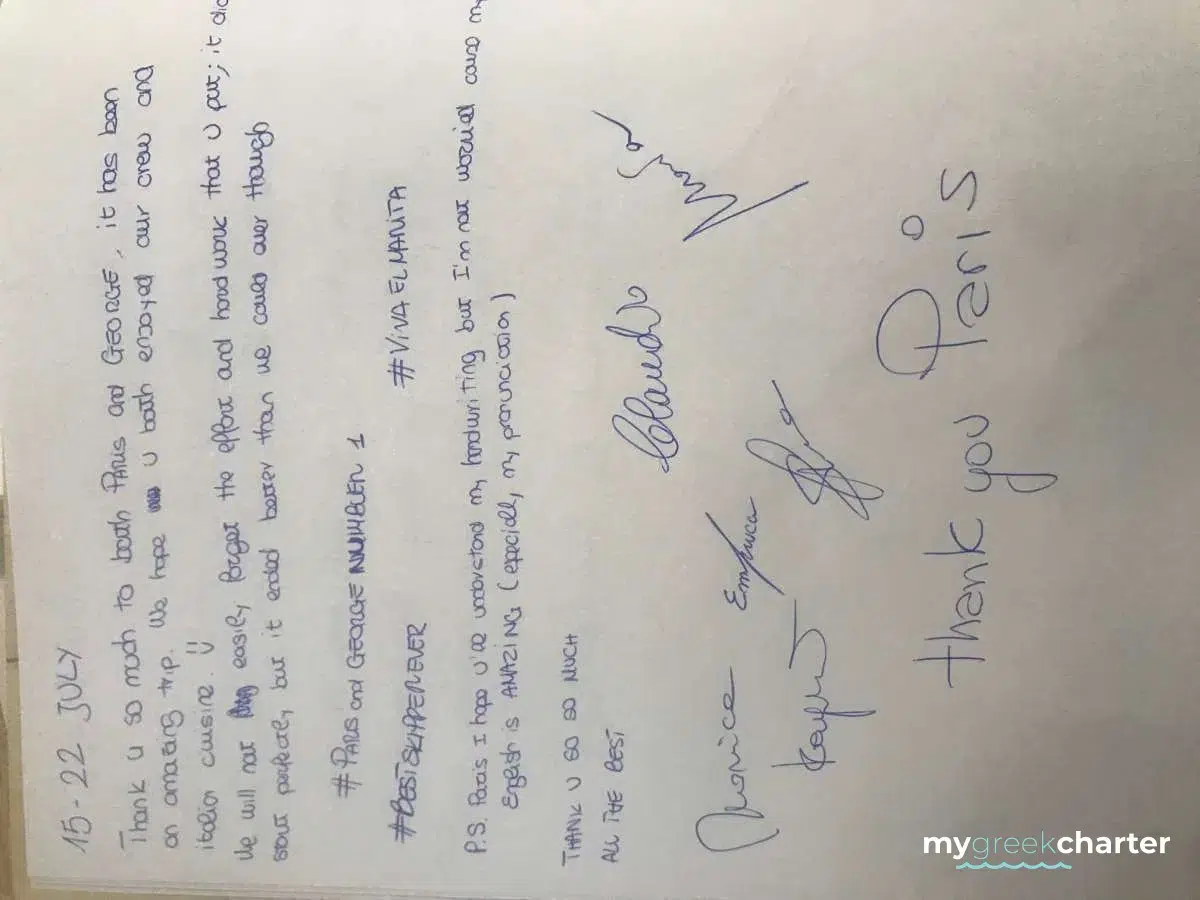 15-22 JULY
Thank u so much to both Paris and GEORGE, it has been
an amazing trip. We hope u both enjoyed our crew and
italian cuisine.
We will not easily forget the effort and hard work that u put; it did
start perfectly but it ended better than we could ever though
#PARIS and GEORGE NUMBER 1
#BESTSKIPPEREVER #VIVA EL MANITA
P.S. Paris I hope u'll understand my handwriting but I'm not worried cause my
English is AMAZING (especially, my pronunciation)
THANK U SO SO MUCH
ALL THE BEST
Claudio
Monice
thank you Paris
mygreekcharter